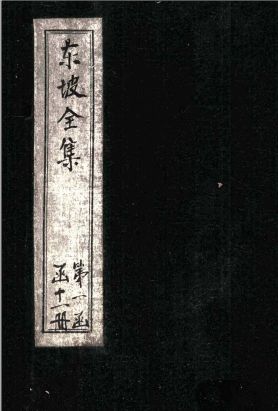 东坡全集
第一函
函十一册